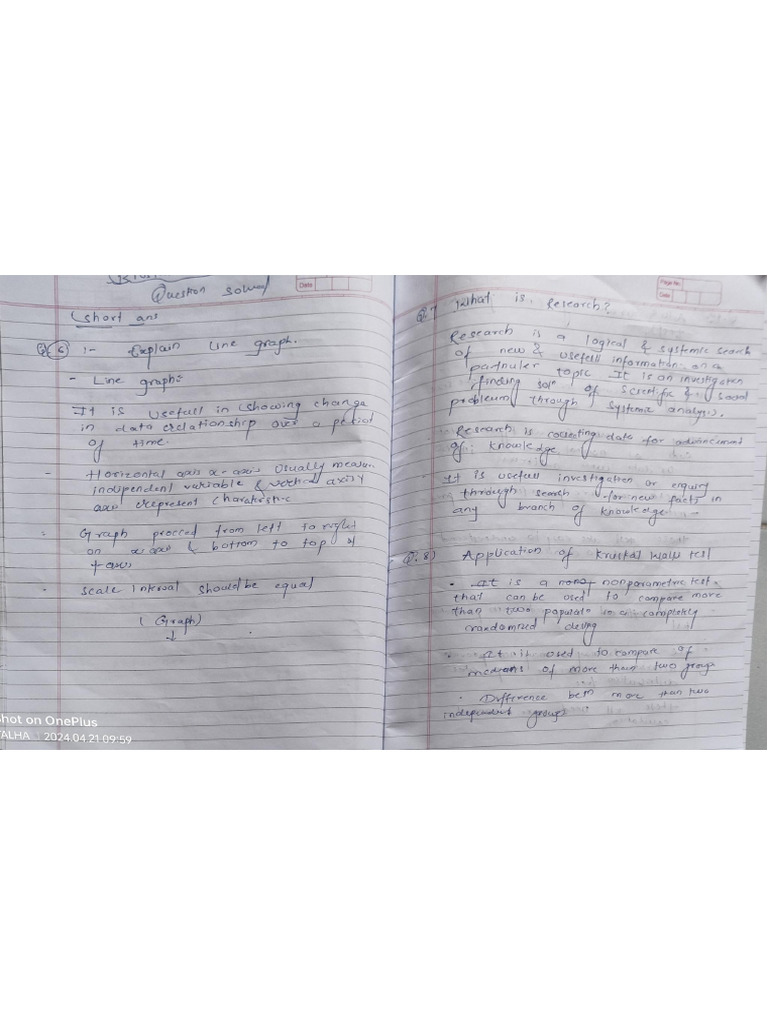 Question solved
Date
Short ans
Q.6 :- Explain line graph.
- Line graph:
It is usefull in showing change
in data relationship over a period
of time.
- Horizontal axis x-axis usually measure
independent variable & vertical axis Y
axis represent charateristic
- Graph procced from left to right
on x axis & bottom to top of
Y axis
- Scale interval should be equal
( Graph)
↓
Shot on OnePlus
TALHA 2024.04.21 09:59
Page No.
Date
Q.7 What is Research?
Research is a logical & systemic search
of new & usefull information on a
particuler topic It is an investigation
finding of scientific & social
problem through systemic analysis.
- Research is collecting data for advancement
of knowledge
- It is usefull investigation or enquiry
through search for new facts in
any branch of knowledge
Q.8) Application of Kruskal Wallis test
• It is a nonparametric test
that can be used to compare more
than two in completely
randomized
• It is used to compare of
medians of more than two group
• Difference betn more than two
independent group